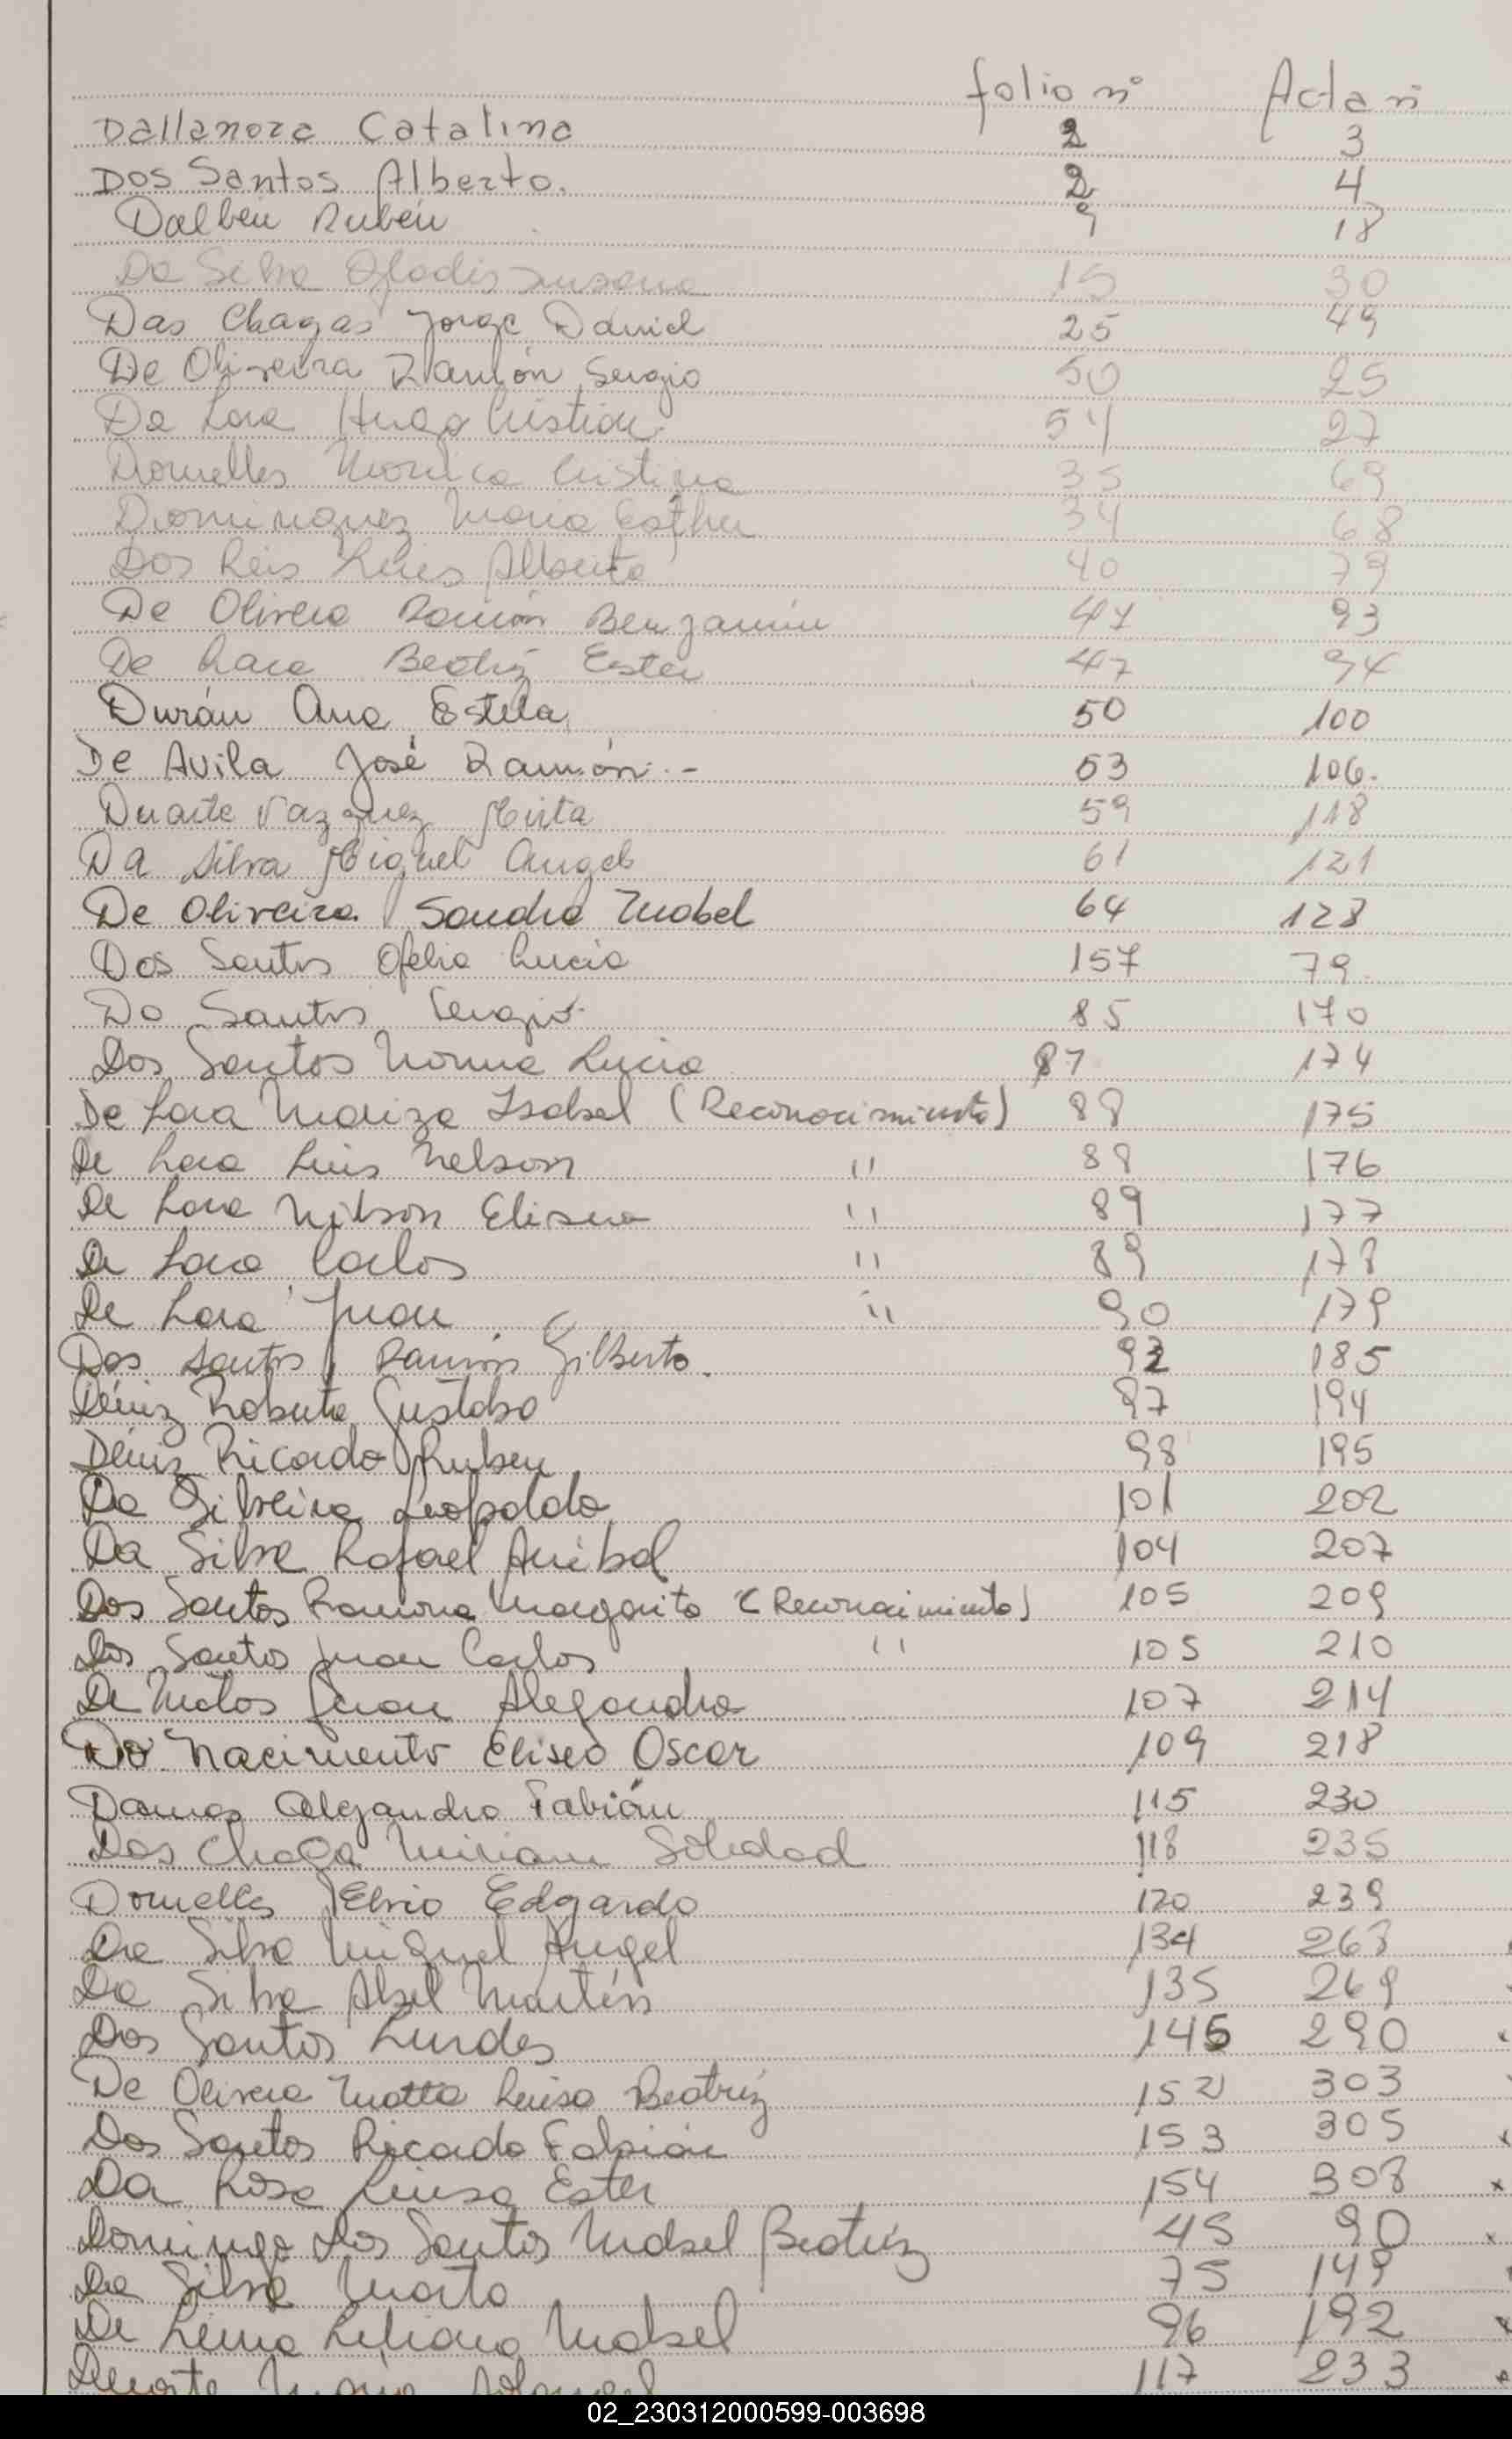 folio nº Acta nº
Dallanora Catalina 2 3
Dos Santos Alberto. 2 4
Dalben Rubén 9 18
Da Silva Gladis Susana 15 30
Das Chagas Jorge Daniel 25 49
De Oliveira Ramón Sergio 50 25
De Lara Hugo Cristian 54 27
Dornelles Mónica Cristina 35 69
Dominguez Maria Esther 34 68
Dos Reis Luis Alberto 40 79
De Olivera Ramón Benjamín 47 93
De Lara Beatriz Ester 47 94
Durán Ana Estela 50 100
De Avila José Ramón.- 53 106.
Duarte Vazquez Mirta 59 118
Da Silva Miguel Angel 61 121
De Oliveira Sandra Mabel 64 128
Dos Santos Ofelia Lucia 157 79
Do Santos Sergio. 85 170
Dos Santos Norma Lucia 87 174
De Lara Mariza Isabel (Reconocimiento) 88 175
De Lara Luis Nelson " 88 176
De Lara Nilson Eliseo " 89 177
De Lara Carlos " 89 178
De Lara Juan " 90 179
Dos Santos Ramón Gilberto. 92 185
Déniz Roberto Gustabo 97 194
Déniz Ricardo Ruben 98 195
Da Silveira Leopoldo 101 202
Da Silva Rafael Anibal 104 207
Dos Santos Ramona Margarita (Reconocimiento) 105 209
Dos Santos Juan Carlos " 105 210
De Matos Juan Alejandro 107 214
Do Nacimento Eliseo Oscar 109 218
Damas Alejandro Fabián 115 230
Das Chaga Miriam Soledad 118 235
Dornelles Elvio Edgardo 120 239
Da Silva Miguel Angel 134 268
Da Silva Abel Martín 135 269
Dos Santos Lurdes 145 290
De Olivera Motta Luisa Beatríz 152 303
Dos Santos Ricardo Fabián 153 305
Da Rosa Luisa Ester 154 308
Domingo Dos Santos Mabel Beatriz 45 90
Da Silva Marta 75 149
De Lima Liliana Mabel 96 192
Duarte María 117 233
02_230312000599-003698